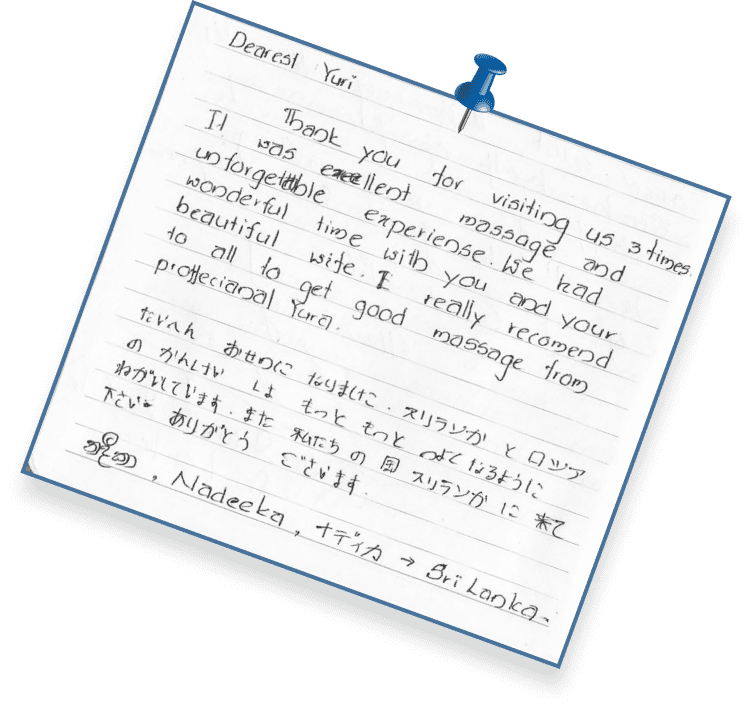 Dearest Yuri
Thank you for visiting us 3 times.
It was excellent massage and
unforgettable experiense. We had
wonderful time with you and your
beautiful wife. I really recomend
to all to get good massage from
proffecianal Yura.
たいへん おせわに なりました. スリランカ と ロシア
の かんけい は もっと もっと つよくなるように
ねがいています. また 私たち の 国 スリランカ に 来て
下さい. ありがとう ございます.
, Nadeeka, ナディカ → Sri Lanka.